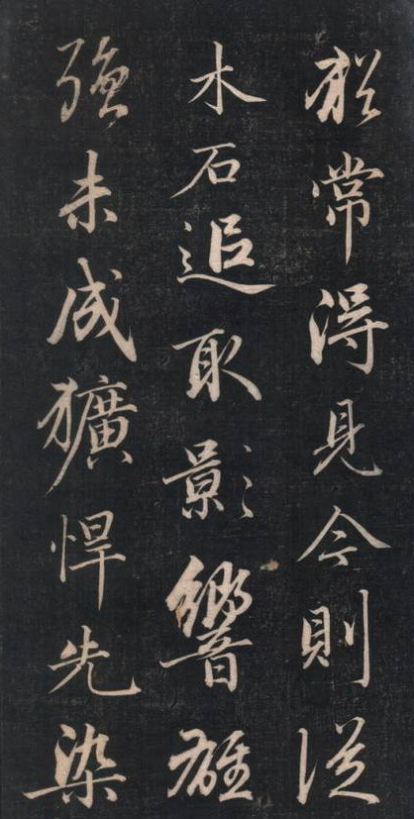 猶常得見今則從
水石追取影響雄
強未成獷悍先染